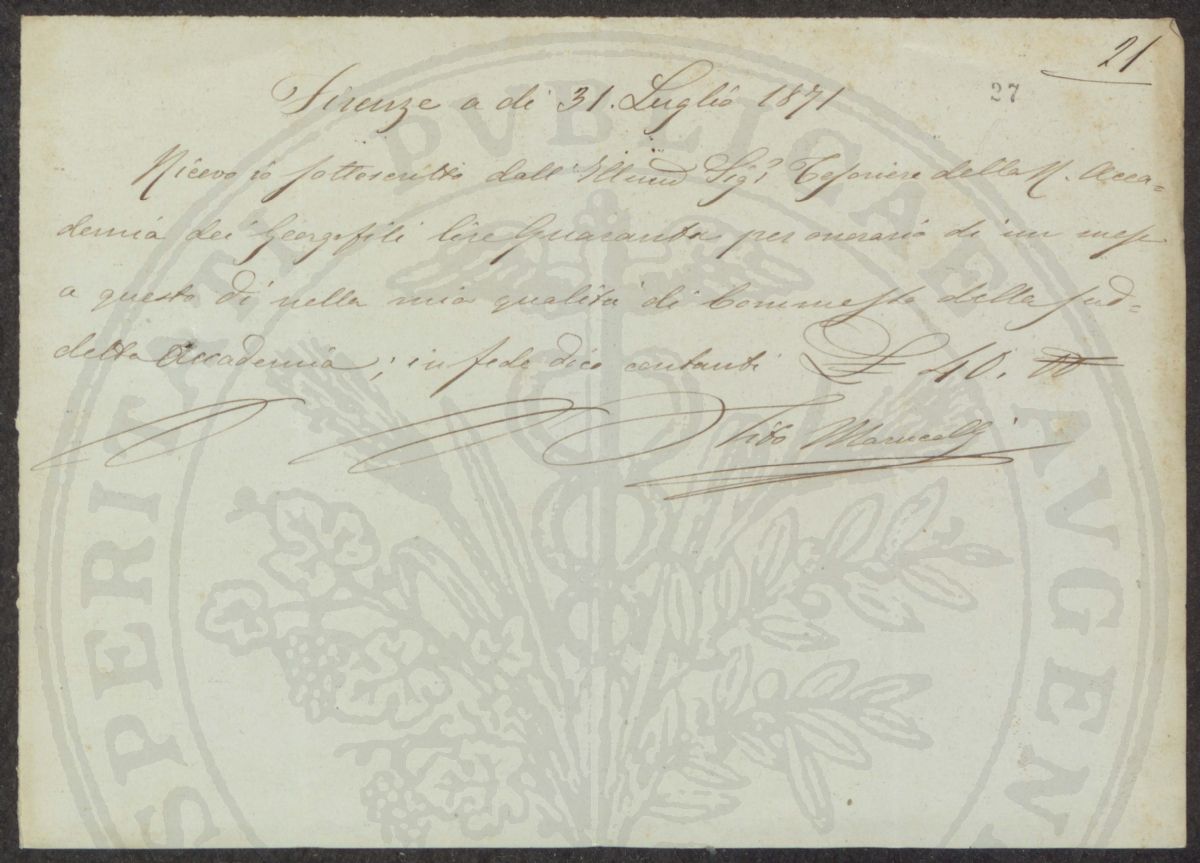 21
27
Firenze a di 31. Luglio 1871
Ricevo io sottoscritto dall' Illmo Sigr Tesoriere della R. Acca=
demia dei Georgofili lire Quaranta per onorario di un mese
a questo dì nella mia qualità di Commesso della sud=
detta Accademia; in fede dico contanti £ 40.
Tito
PVBLICAE
AVGEN
SPERITATI